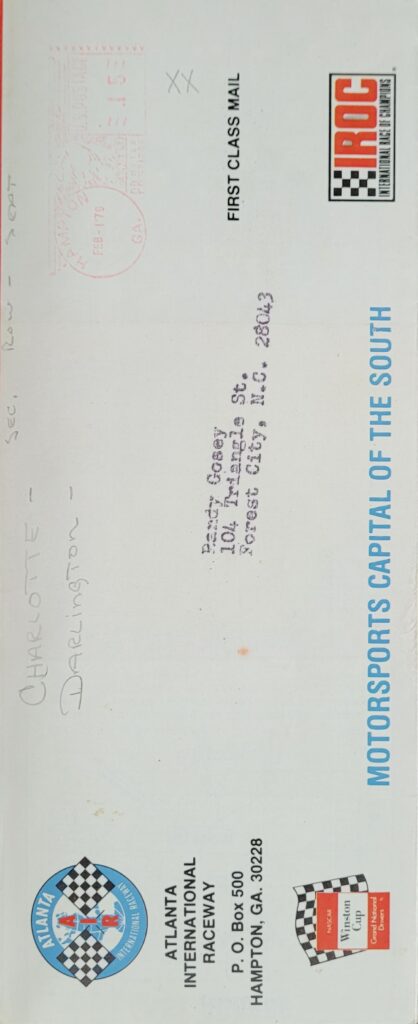 CHARLOTTE -
SEC. ROW - SEAT
DARLINGTON -
XX
HAMPTON
FEB-1'76
GA.
U.S. POSTAGE
ATLANTA
AIR
INTERNATIONAL RACEWAY
ATLANTA
INTERNATIONAL
RACEWAY
P. O. Box 500
HAMPTON, GA. 30228
FIRST CLASS MAIL
Randy Gosey
104 Triangle St.
Forest City, N.C. 28043
NASCAR
Winston
Cup
Grand National
Drivers
MOTORSPORTS CAPITAL OF THE SOUTH
IROC
INTERNATIONAL RACE OF CHAMPIONS